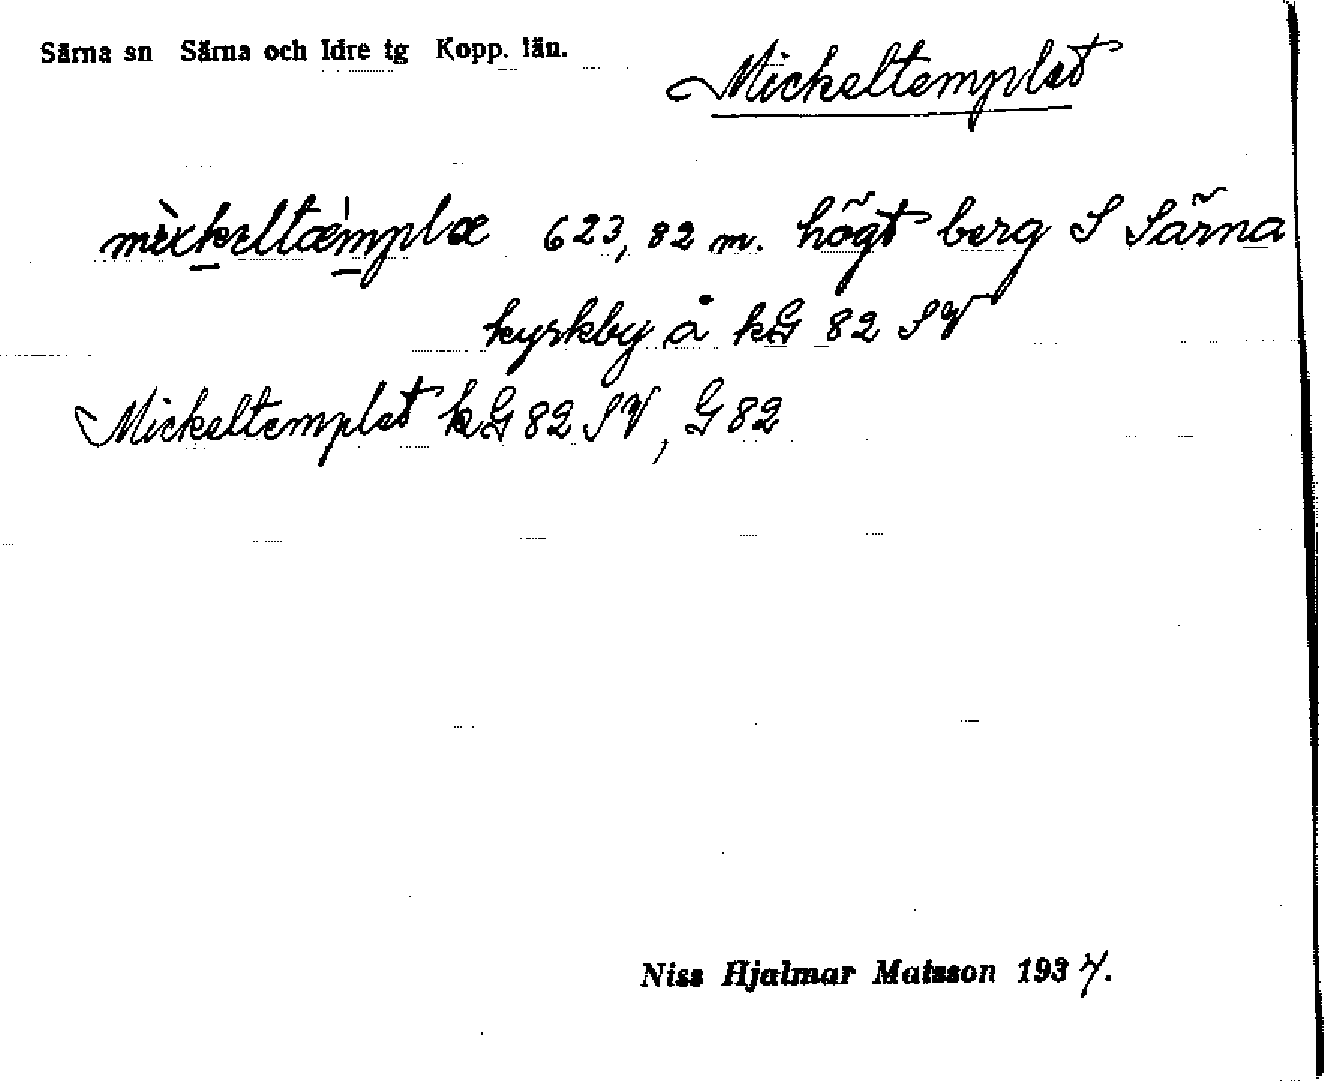 Särna sn Särna och Idre tg Kopp. län.
Mickeltemplet
mìckeltæ̀mplæ 623,82 m. högt berg S Särna
kyrkby å kG 82 SV
Mickeltemplet kG 82 SV, G 82
Niss Hjalmar Matsson 1937.